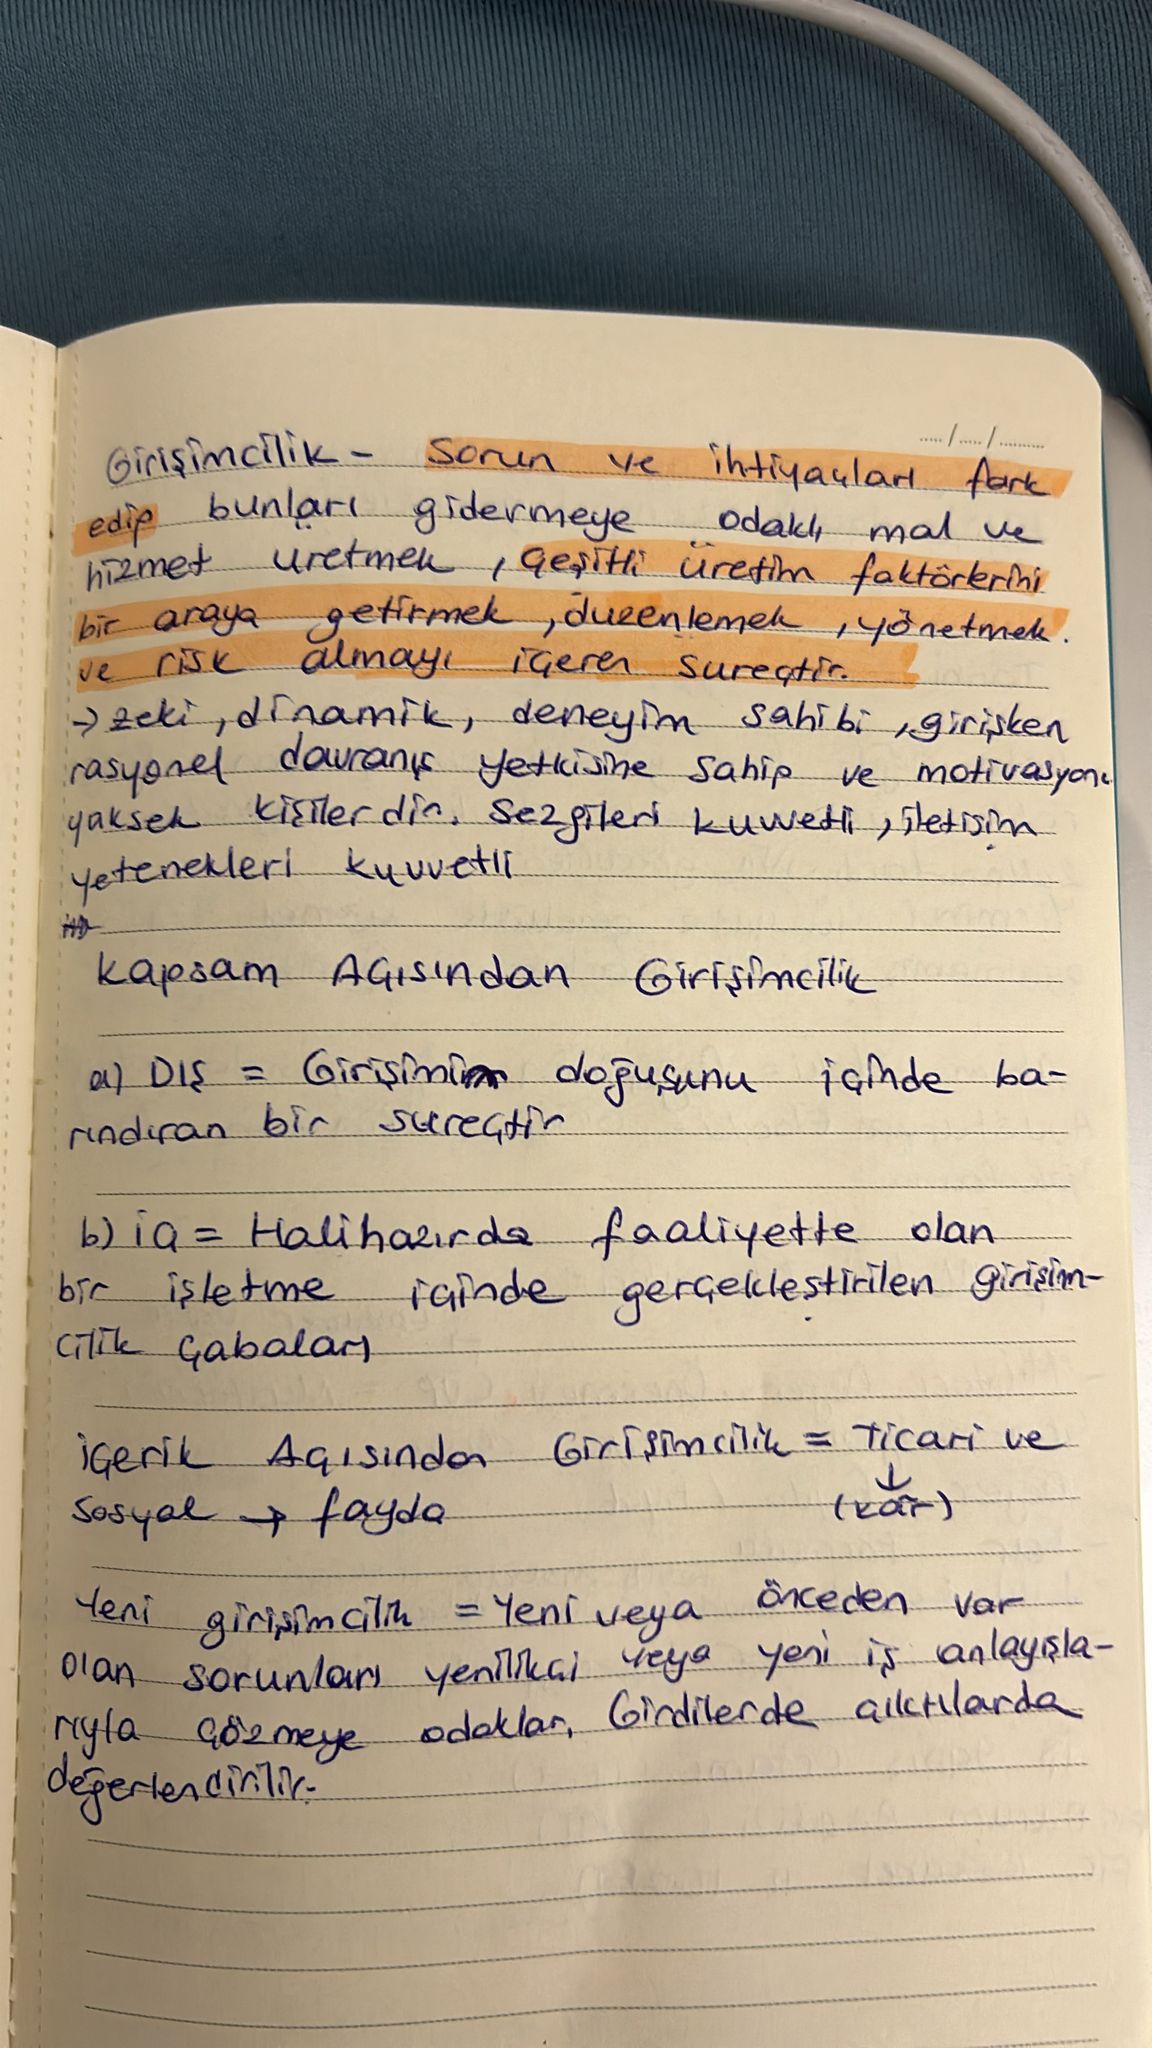 ..... / ..... / ..........
Girişimcilik - Sorun ve ihtiyaçları fark
edip bunları gidermeye odaklı mal ve
hizmet üretmek, çeşitli üretim faktörlerini
bir araya getirmek, düzenlemek, yönetmek.
ve risk almayı içeren süreçtir.
→ zeki, dinamik, deneyim sahibi, girişken
rasyonel davranış yetkisine sahip ve motivasyonu
yüksek kişilerdir. Sezgileri kuvvetli, iletişim
yetenekleri kuvvetli
Kapsam Açısından Girişimcilik
a) Dış = Girişimin doğuşunu içinde ba-
rındıran bir süreçtir
b) iç = Halihazırda faaliyette olan
bir işletme içinde gerçekleştirilen girişim-
cilik çabaları
içerik Açısından Girişimcilik = Ticari ve
sosyal → fayda ↓ (kâr)
Yeni girişimcilik = Yeni veya önceden var
olan sorunları yenilikçi veya yeni iş anlayışla-
rıyla çözmeye odaklar. Girdilerde çıktılarda
değerlendirilir.